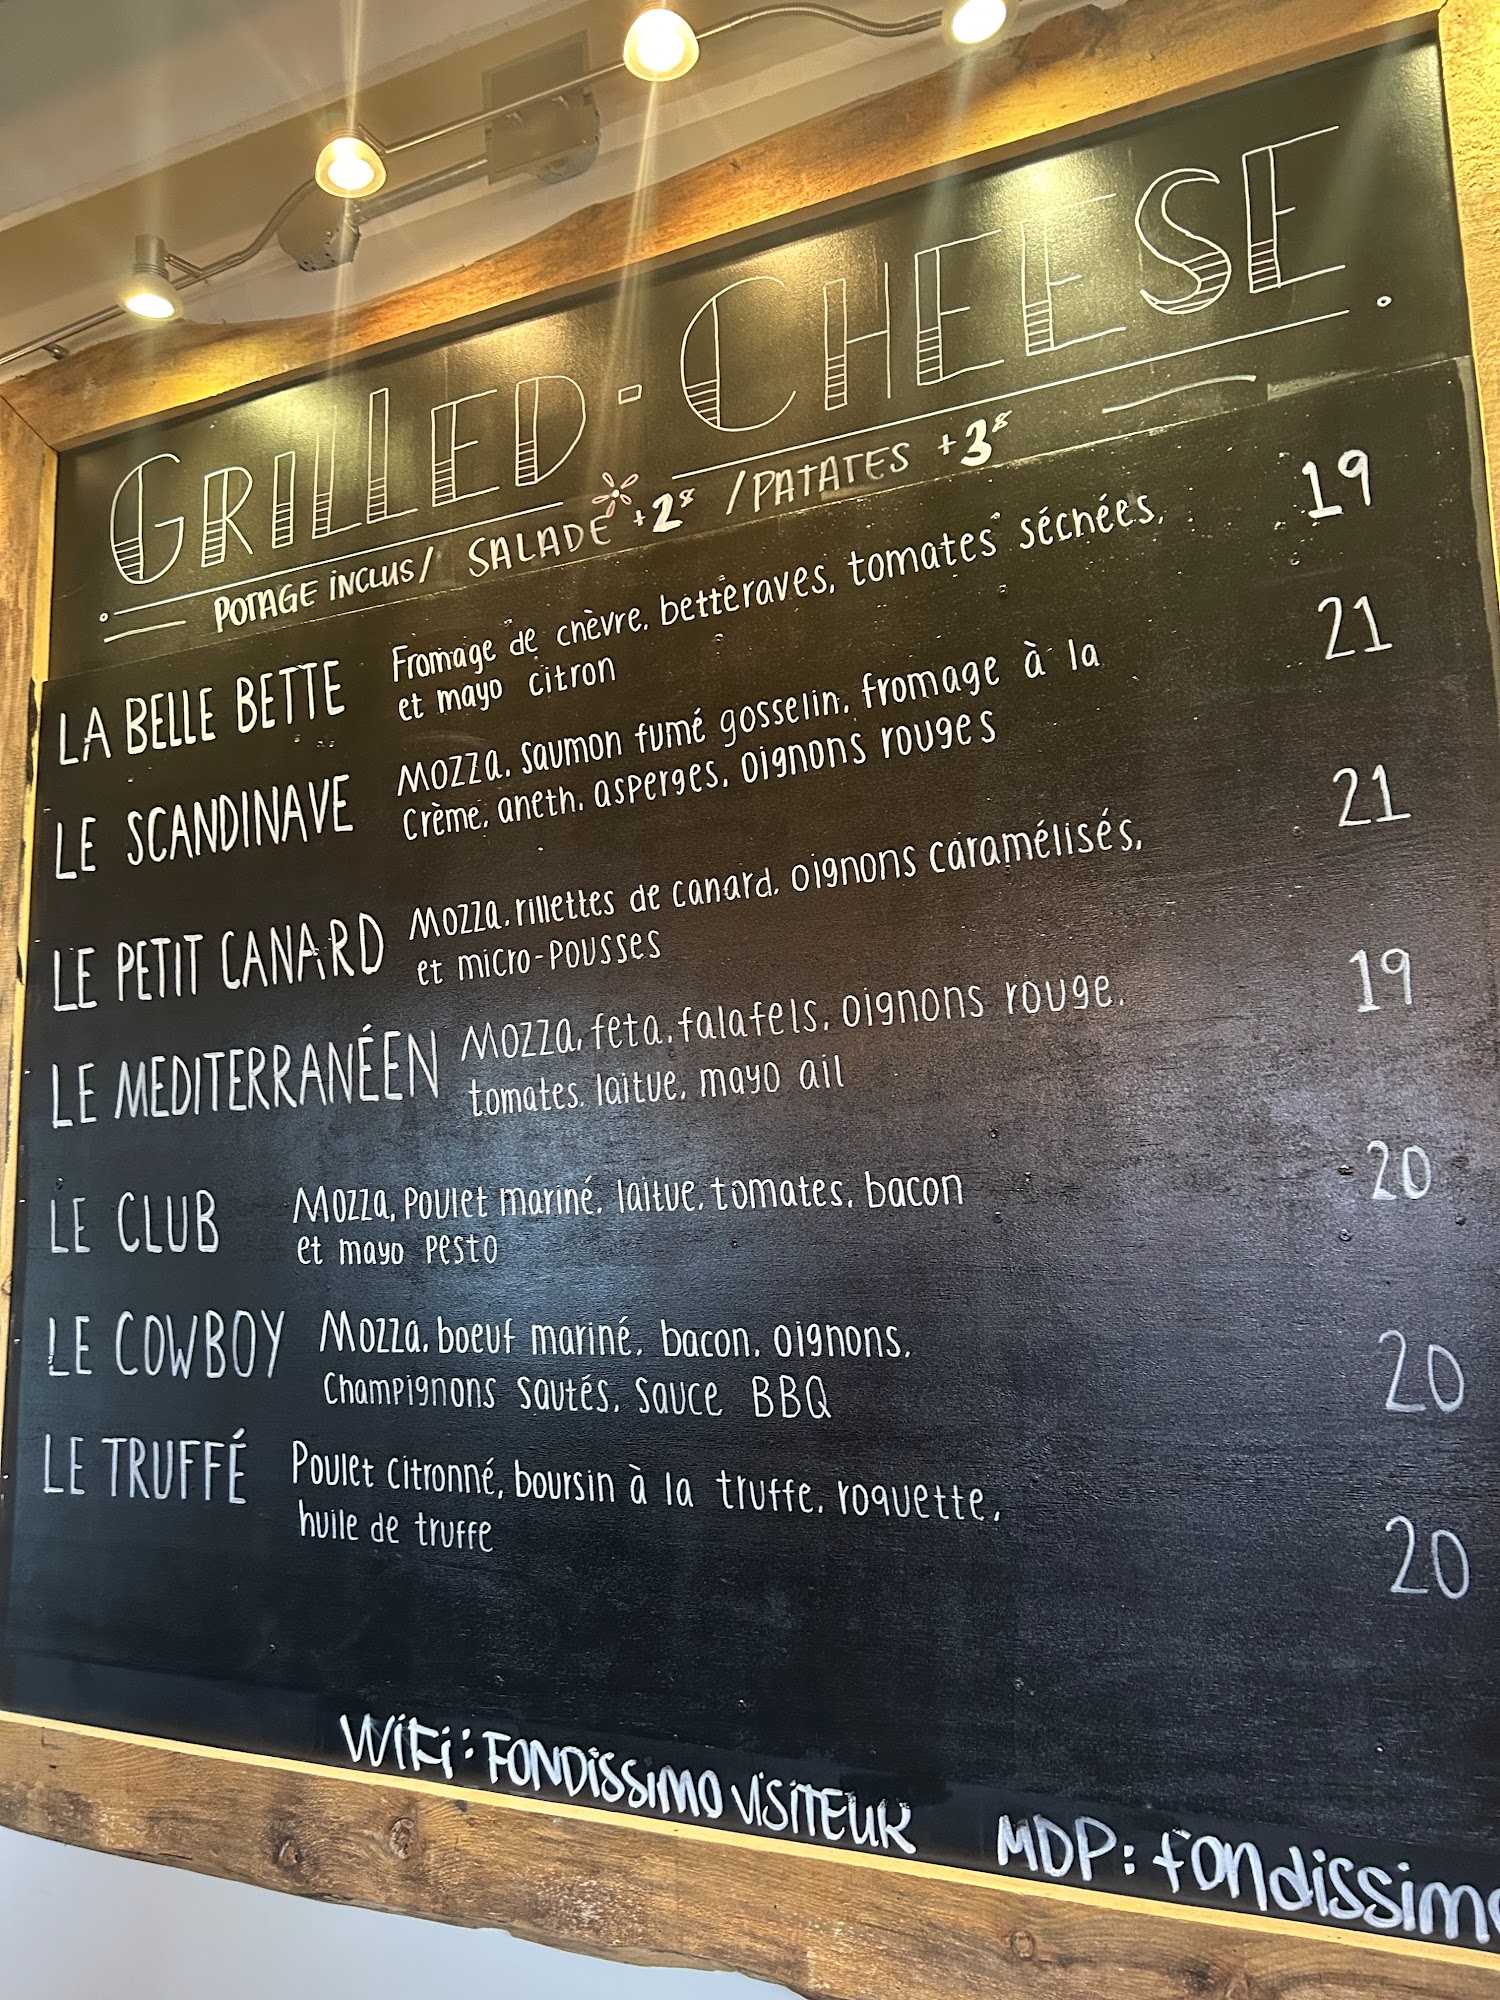 GRILLED-CHEESE
POTAGE INCLUS / SALADE +2$ / PATATES +3$
LA BELLE BETTE Fromage de chèvre, betteraves, tomates séchées, 19
et mayo citron
LE SCANDINAVE Mozza, saumon fumé gosselin, fromage à la 21
crème, aneth, asperges, oignons rouges
LE PETIT CANARD Mozza, rillettes de canard, oignons caramélisés, 21
et micro-pousses
LE MEDITERRANÉEN Mozza, feta, falafels, oignons rouge, 19
tomates, laitue, mayo ail
LE CLUB Mozza, poulet mariné, laitue, tomates, bacon 20
et mayo pesto
LE COWBOY Mozza, boeuf mariné, bacon, oignons, 20
champignons sautés, sauce BBQ
LE TRUFFÉ Poulet citronné, boursin à la truffe, roquette, 20
huile de truffe
WiFi : FONDISSIMO VISITEUR MDP : fondissimo